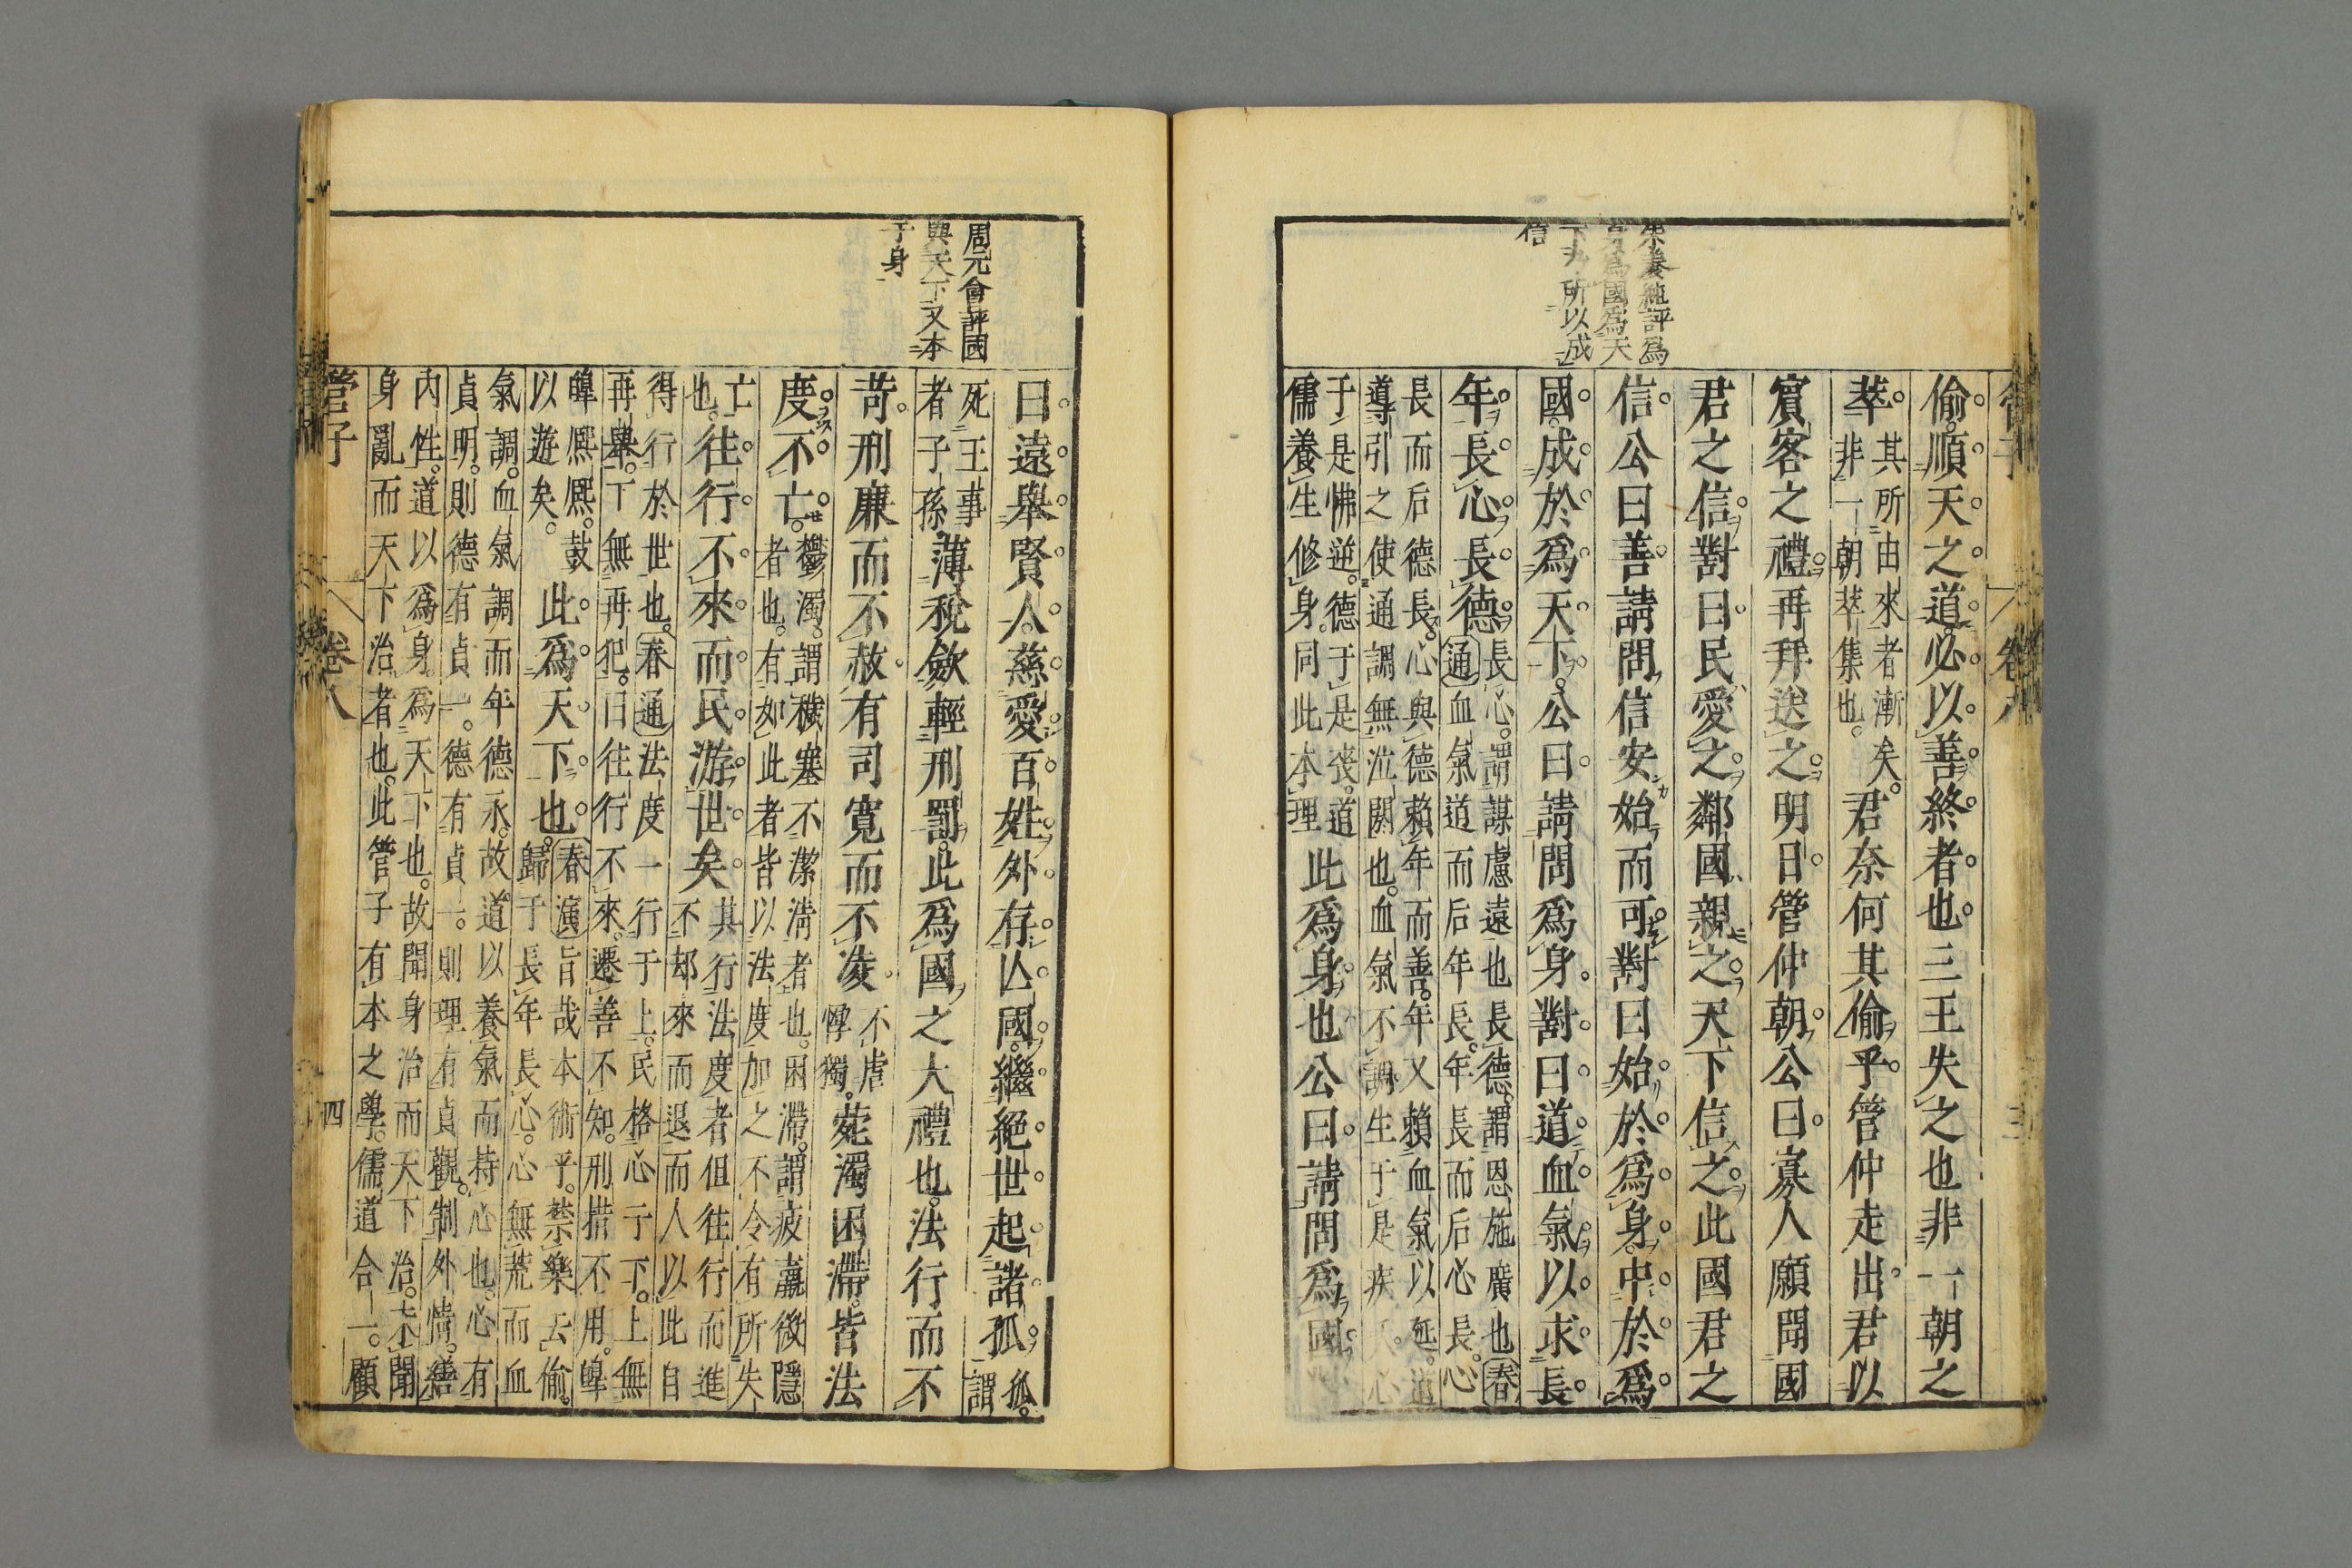 管子
卷八
三
朱養純評爲
身爲國爲天
下乃所以成
信
偷順天之道必以善終者也三王失之也非一朝之
萃
其所由來者漸矣
非一朝萃集也
君奈何其偷乎管仲走出君以
賓客之禮再拜送之明日管仲朝公曰寡人願聞國
君之信對曰民愛之鄰國親之天下信之此國君之
信公曰善請問信安始而可對曰始於爲身中於爲
國成於爲天下公曰請問爲身對曰道血氣以求長
年長心長德
長心謂謀慮遠也長德謂恩施廣也春
通血氣道而后年長年長而后心長心
長而后德長心與德賴年而善年又賴血氣以延道
導引之使通調無泣闕也血氣不調生于是疾心
于是怫逆德于是喪道
儒養生修身同此本理
此爲身也公曰請問爲國
周元會評國
與天下又本
于身
曰遠舉賢人慈愛百姓外存亡國繼絕世起諸孤
孤
謂
死王事
者子孫
薄稅斂輕刑罰此爲國之大禮也法行而不
苛刑廉而不赦有司寬而不凌
不虐
惸獨
菀濁困滯皆法
度不亡
鬱濁謂穢塞不潔淸者也困滯謂疲羸微隱
者也有如此者皆以法度加之不令有所失
亡
也
往行不來而民游世矣
其行法度者但往行而進
不却來而退而人以此自
得行於世也春通法度一行于上民格心于下上無
再舉下無再犯曰往行不來遷善不知刑措不用皥
皥熈熈鼓
以遊矣
此爲天下也
春演旨哉本術乎禁樂去偷
歸于長年長心心無荒而血
氣調血氣調而年德永故道以養氣而持心也心有
貞明則德有貞一德有貞一則理有貞觀制外情繕
內性道以爲身爲天下也故聞身治而天下治未聞
身亂而天下治者也此管子有本之學儒道合一顧
管子
卷八
四